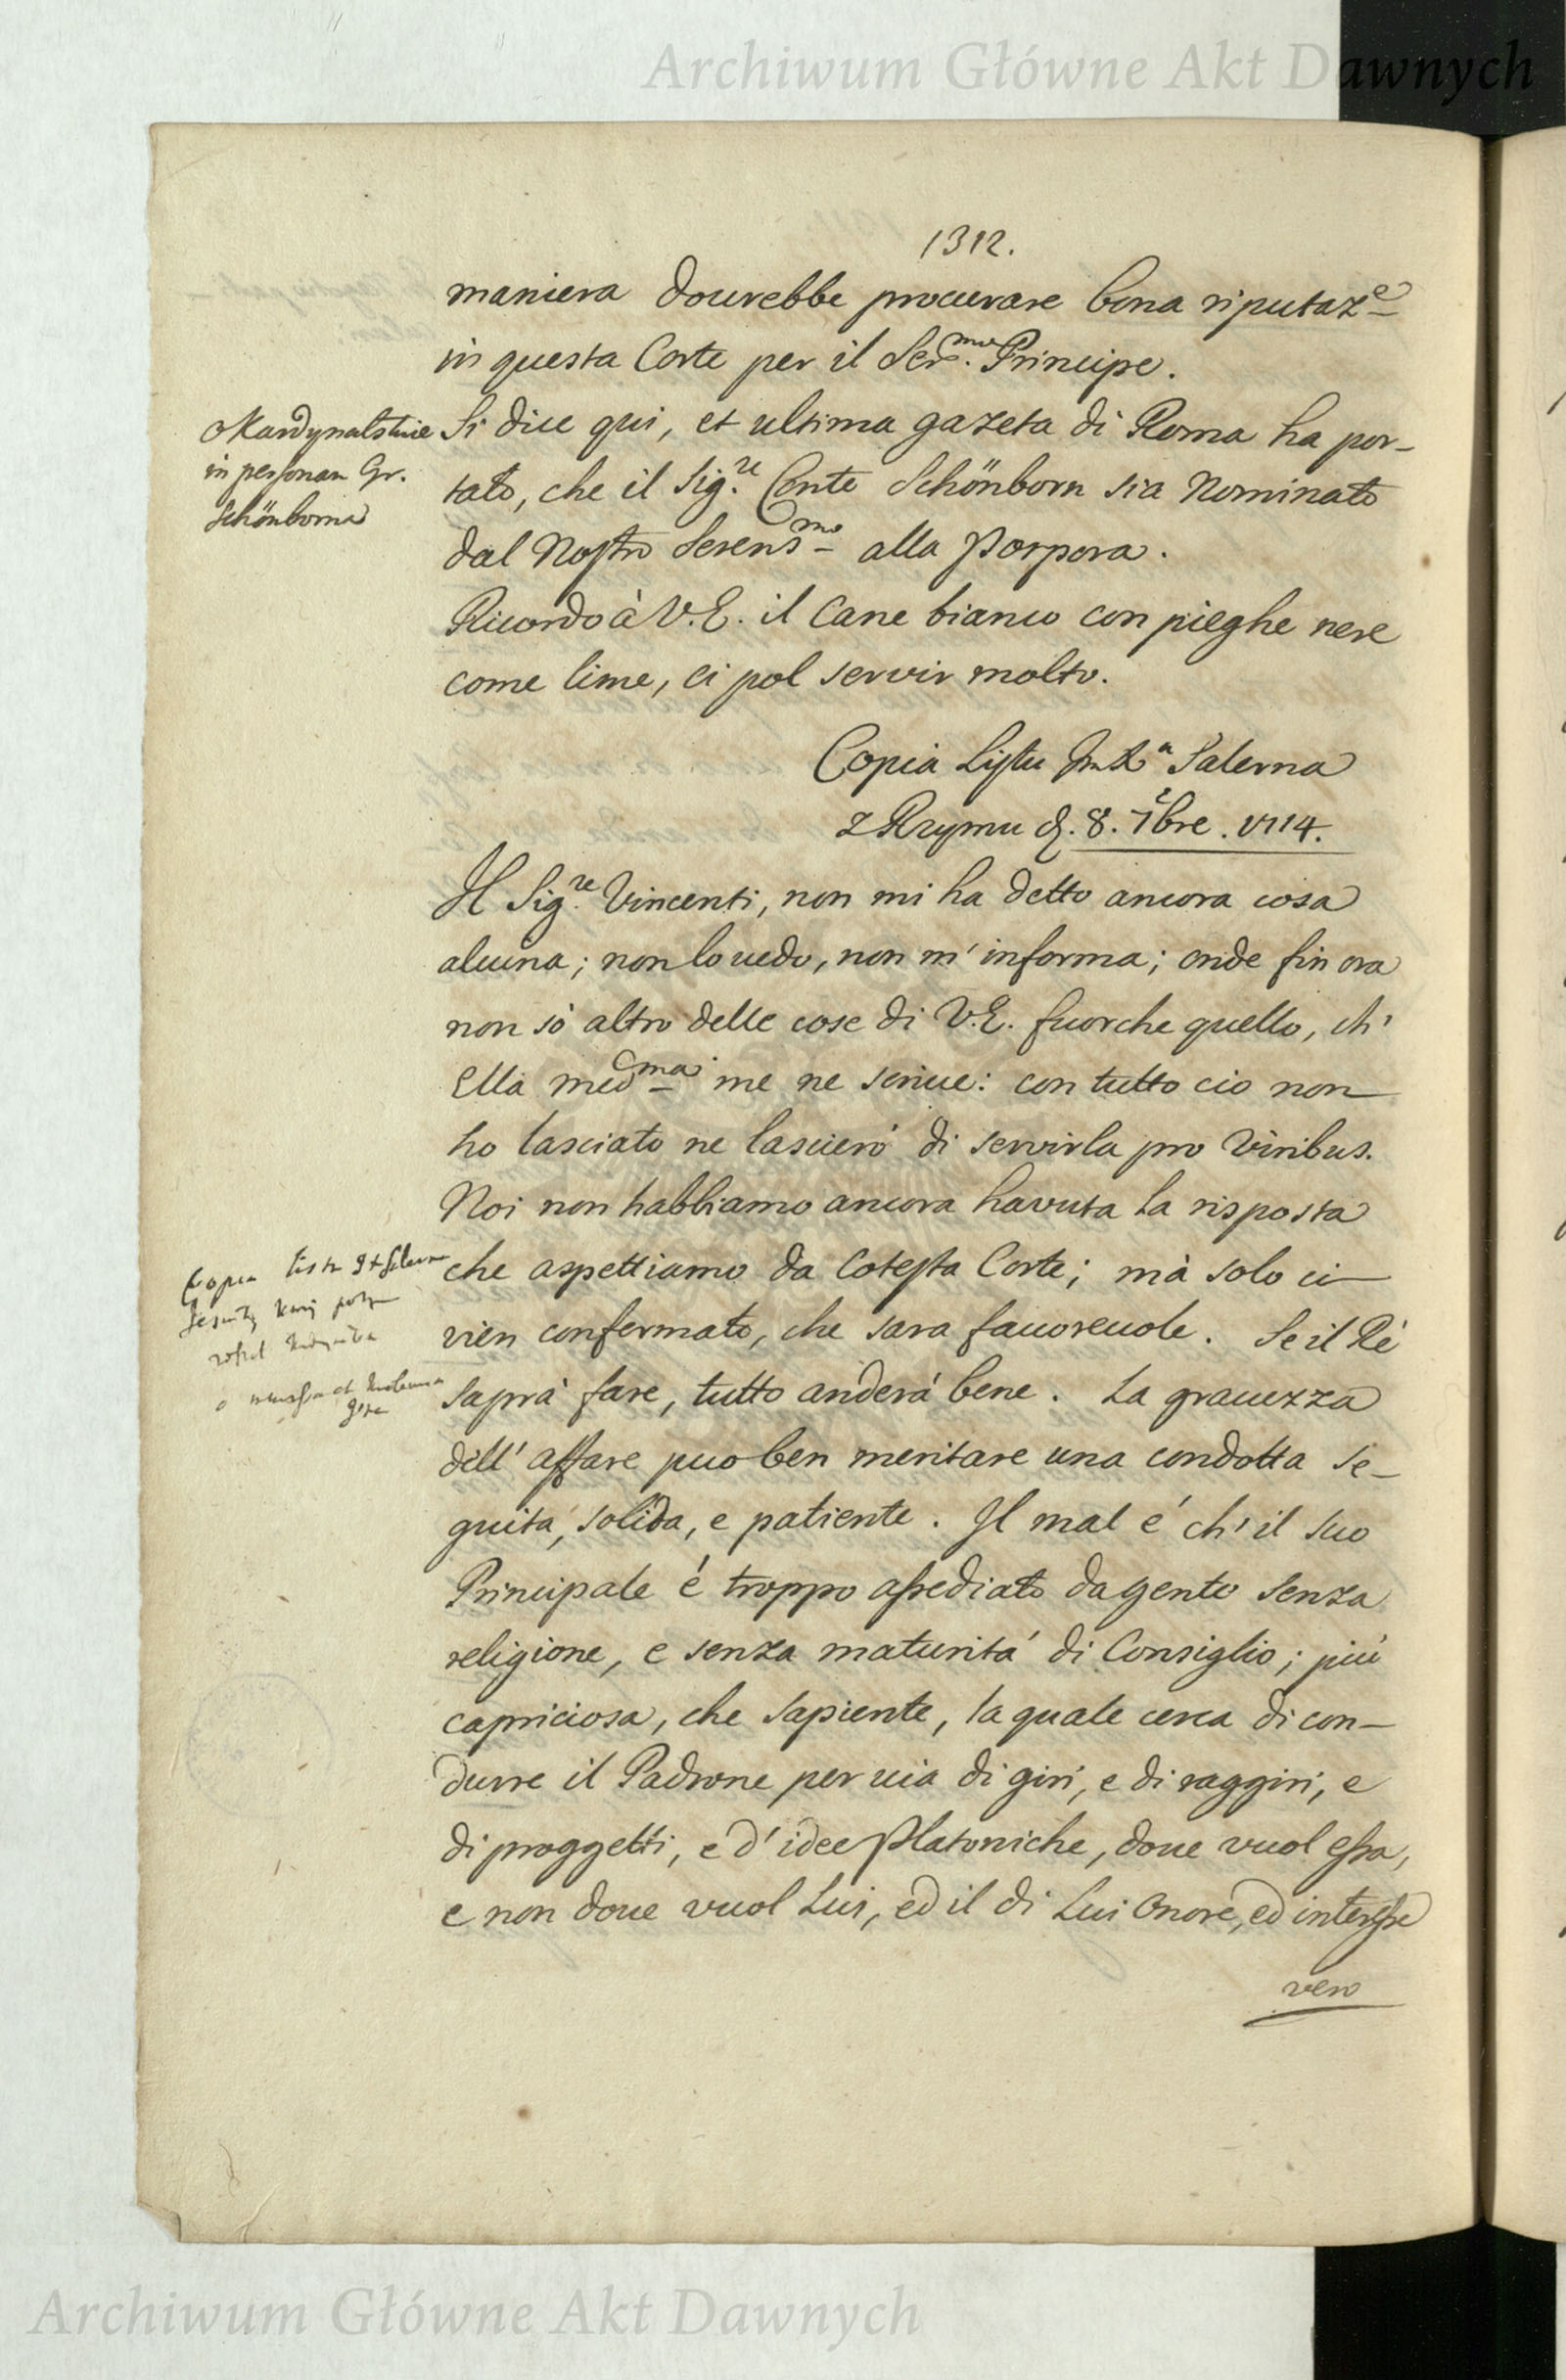 Archiwum Główne Akt Dawnych
1312.
maniera dourebbe procurare bona riputaz.e
in questa Corte per il Ser.mo Principe.
o Kardynalstwie
in personam Gr.
Schönborna
Si dice qui, et ultima gazeta di Roma ha por-
tato, che il Sig.re Conte Schönborn sia Nominato
dal Nostro Serens.mo alla Porpora.
Ricordo à V.E. il Cane bianco con pieghe nere
come lime, ci pol servir molto.
Copia Listu Salerna
z Rzymu d. 8. 7bre. 1714.
Il Sig.re Vincenti, non mi ha detto ancora cosa
alcuna; non lo uedo, non m' informa; onde fin ora
non sò altro delle cose di V.E. fuorche quello, ch'
Ella med.ma me ne scriue: con tutto cio non
ho lasciato ne lascierò di servirla pro Viribus.
Noi non habbiamo ancora havuta la risposta
Copia listu
che aspettiamo da Cotesta Corte; mà solo ci
vien confermato, che sara fauoreuole. Se il Rè
saprà fare, tutto anderá bene. La grauezza
dell' affare puo ben meritare una condotta se-
guita, solida, e patiente. Il mal é ch' il suo
Principale é troppo assediato da gente senza
religione, e senza maturitá di Consiglio; piú
capriciosa, che sapiente, la quale cerca di con-
durre il Padrone per uia di giri, e di raggiri, e
di proggetti, e d' idee Platoniche, doue vuol essa,
e non doue vuol Lui, ed il di Lui Onore, ed interesse
vero
Archiwum Główne Akt Dawnych